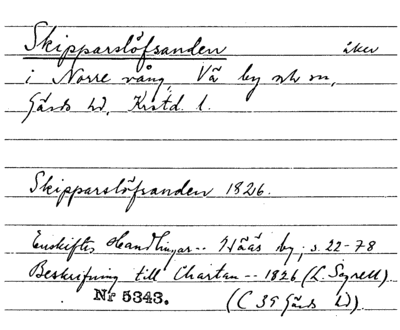 Skipparslöfsanden åker
i Norre vång, Vä by och sn,
Gärds hd, Kristd. l.
Skipparslöfsanden 1826.
Enskiftes Handlingar -- Wääs by; s. 22-78
Beskrifning till Chartan -- 1826 (L. Sagrell)
Nr 5343. (C 35 Gärds hd)